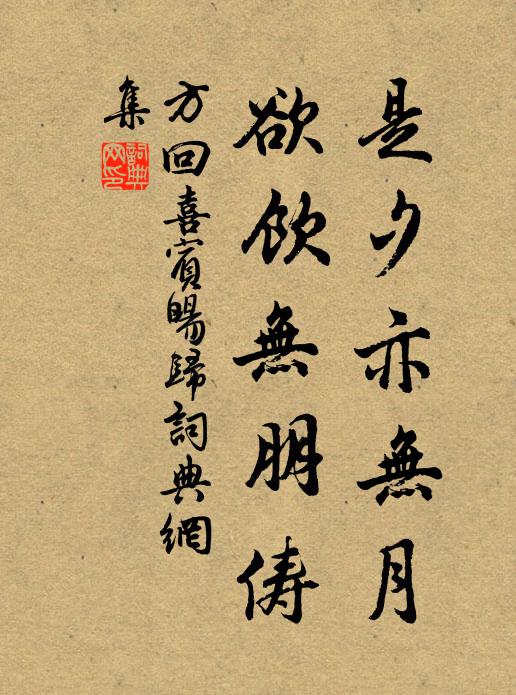 是夕亦無月
欲飲無朋儔
方回喜賓暘歸詞典網
集
詞典網印